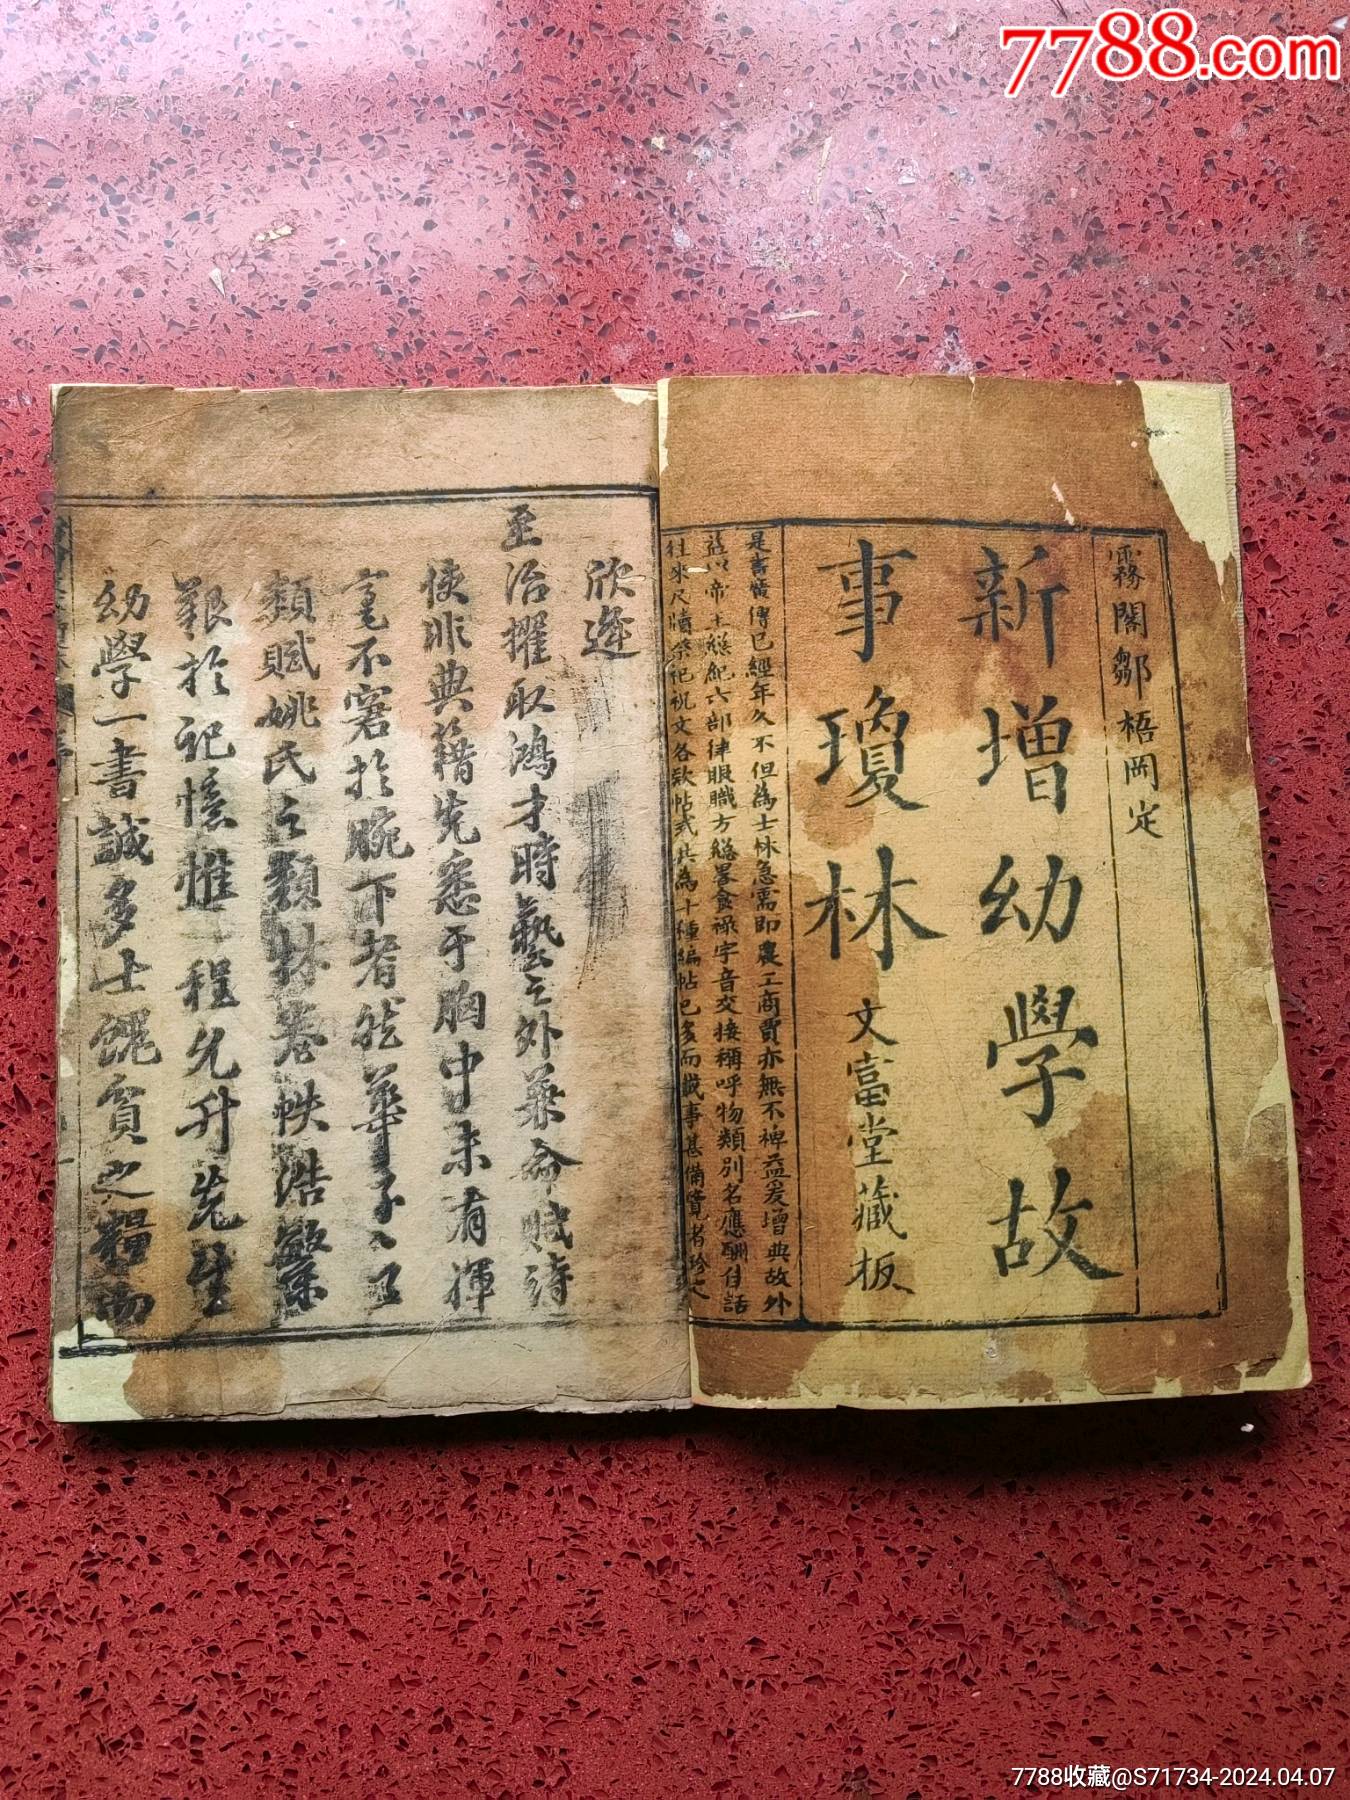 7788.com
霧閣鄒梧岡定
新增幼學故
事瓊林 文富堂藏板
是書廣傳已經年久不但為士林急需即農工商賈亦無不裨益爰增典故外
益以帝王總紀六部律眼職方總畧食祿字音交接稱呼物類別名應酬佳話
往來尺牘祭祀祝文各款帖式共為十種編帖已多而識事甚備覽者珍之
欣逢
至治擢取鴻才時藝之外兼命賦詩
使非典籍先悉于胸中未有揮
毫不窘於腕下者然華子之
類賦姚氏之類林卷帙浩繁
艱於記憶惟程允升先生
幼學一書誠多士餽貧之糧而
7788收藏@S71734-2024.04.07